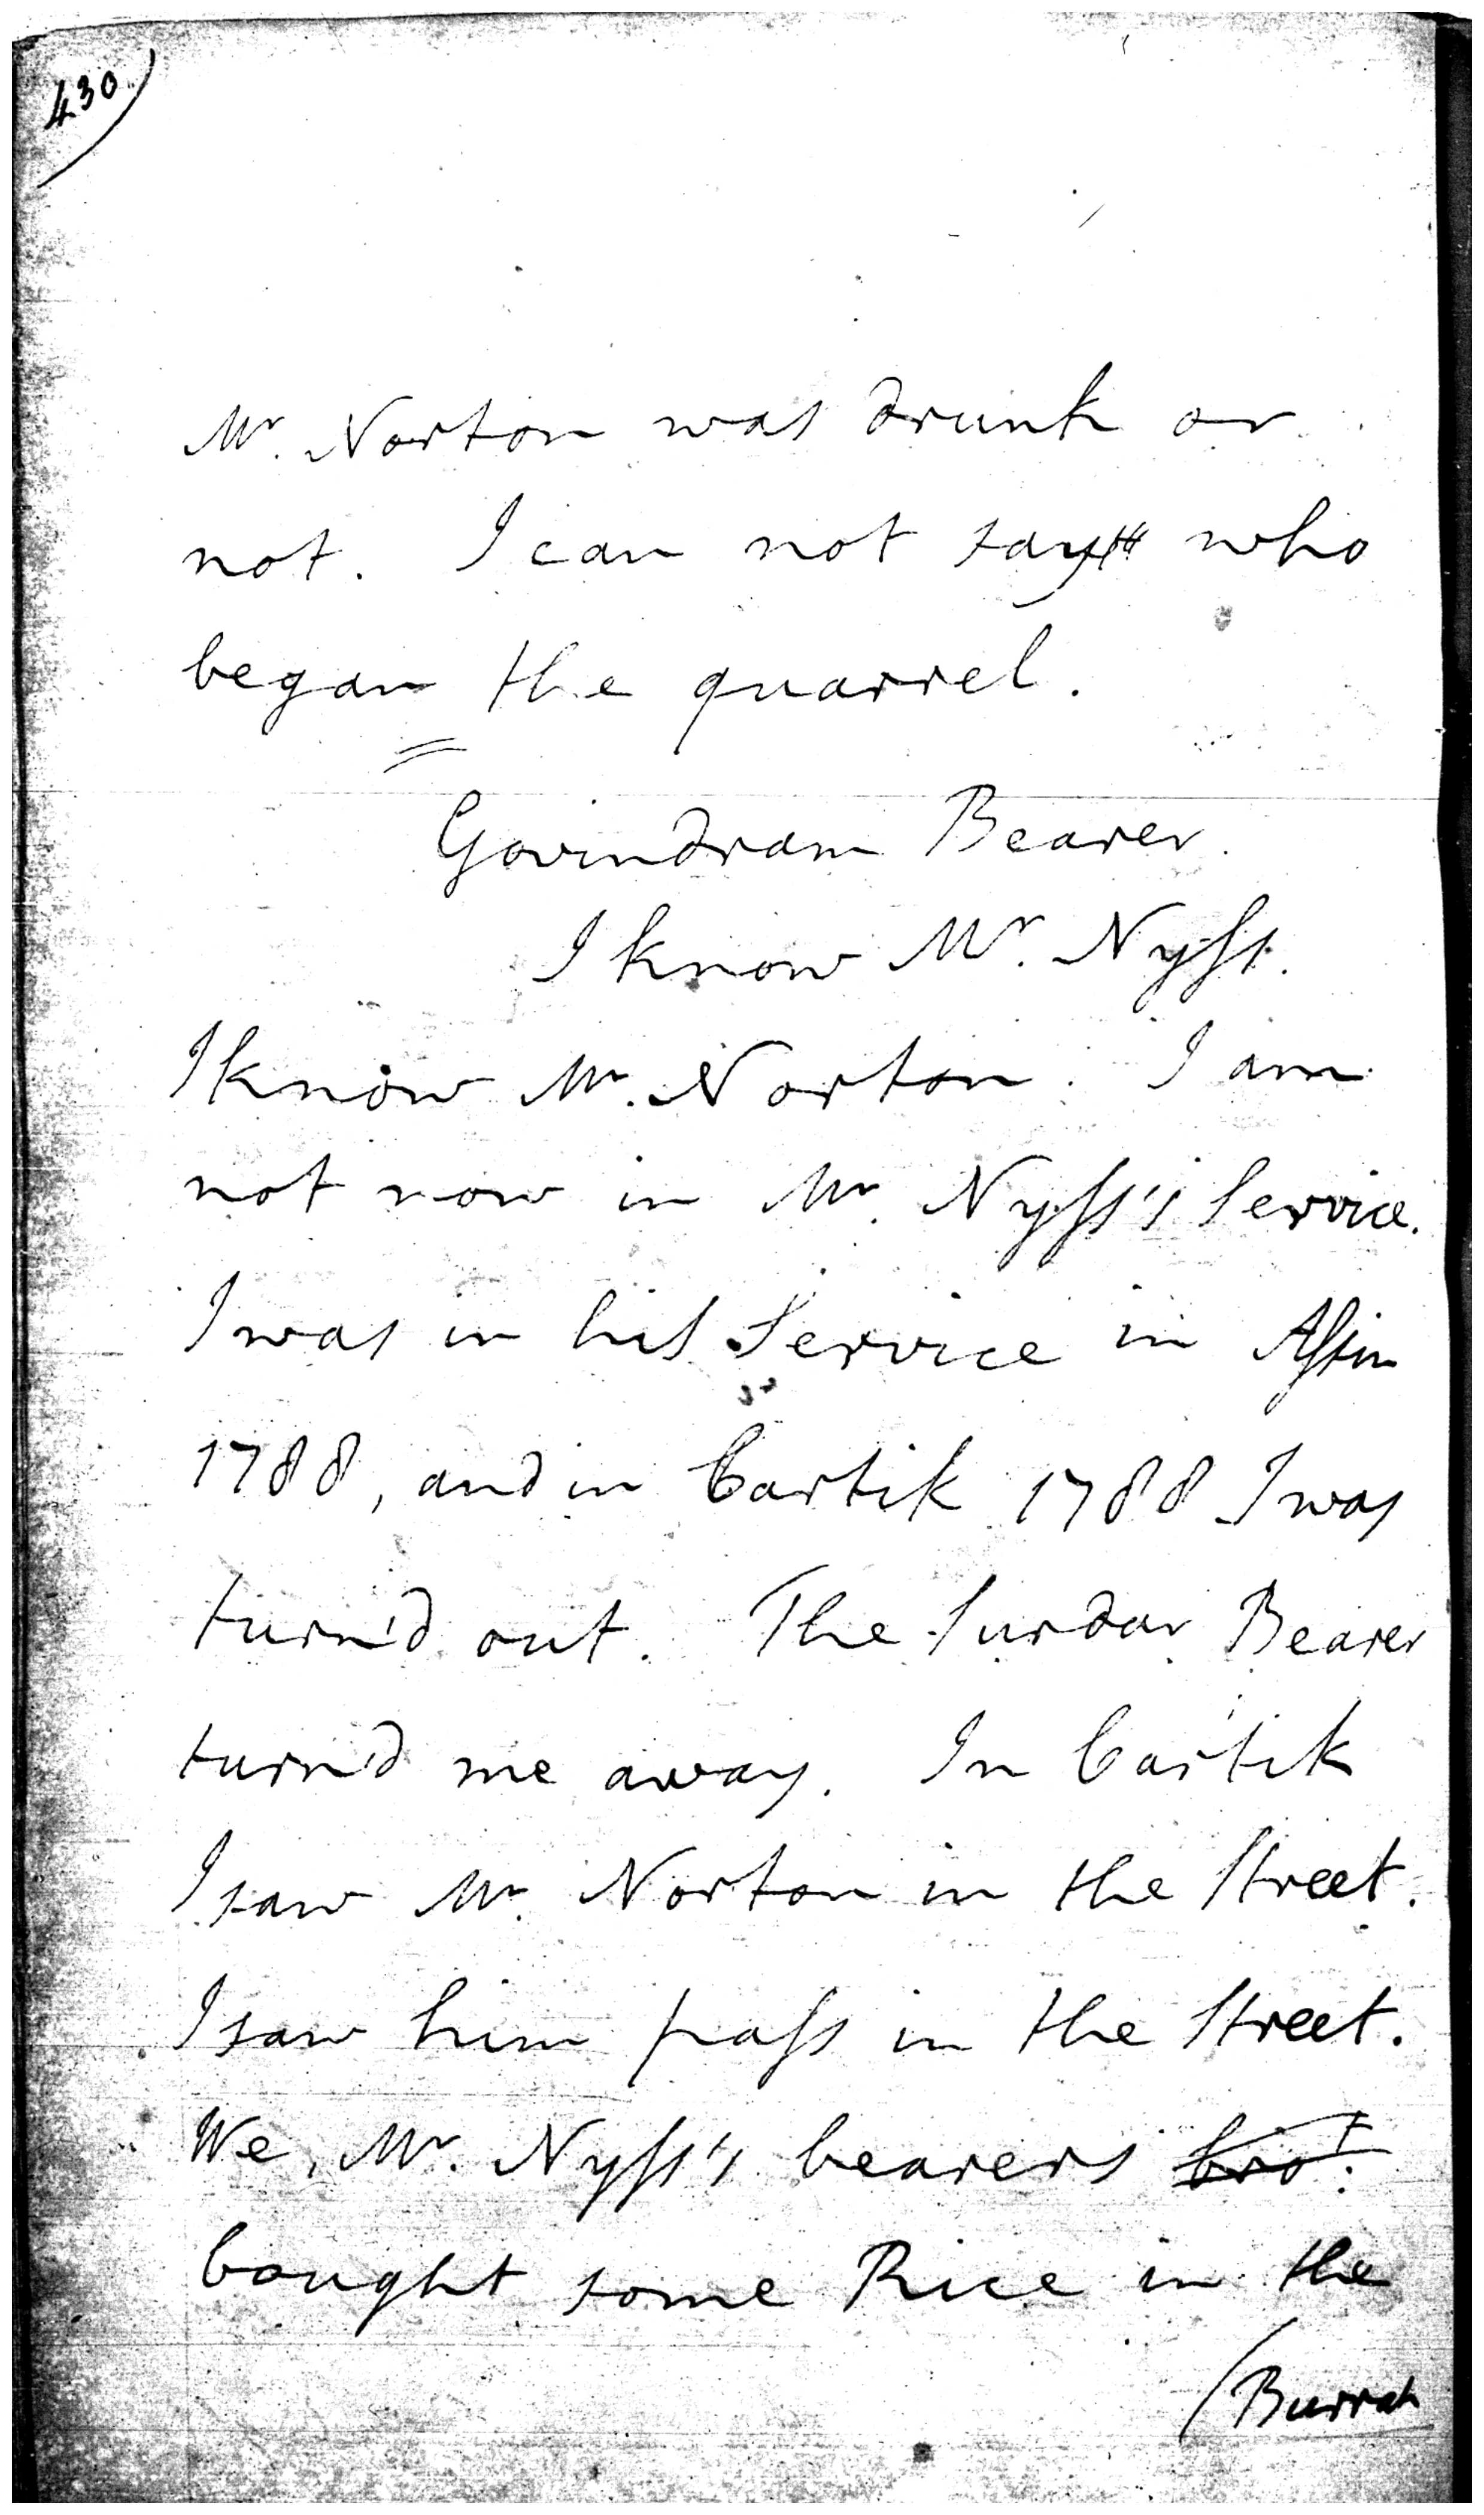 430
Mr. Norton was drunk or
not. I can not say who
began the quarrel.
Govindram Bearer.
I know Mr. Nyss.
I know Mr. Norton. I am
not now in Mr. Nyss's Service.
I was in his Service in Assin
1788, and in Cartik 1788 I was
turn'd out. The Surdar Bearer
turn'd me away. In Cartik
I saw Mr. Norton in the Street.
I saw him pass in the Street.
We, Mr. Nyss's bearers bro.t
bought some Rice in the
(Burrah